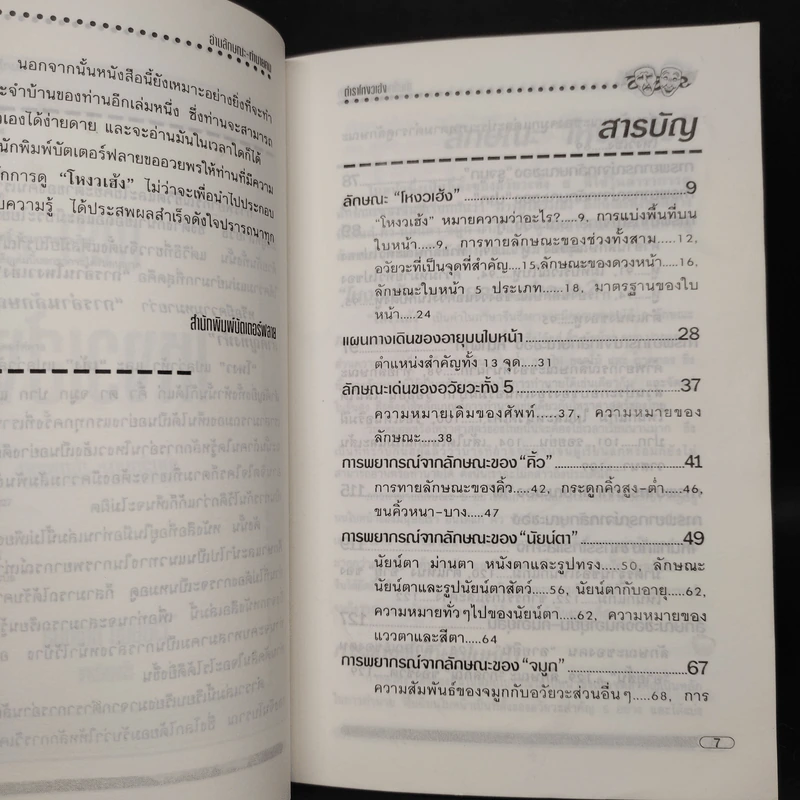 อ่านลักษณะ-ทำนายคน
นอกจากนั้นหนังสือนี้ยังเหมาะอย่างยิ่งที่จะทำ
ะจำบ้านของท่านอีกเล่มหนึ่ง ซึ่งท่านจะสามารถ
วเองได้ง่ายดาย และจะอ่านมันในเวลาใดก็ได้
นักพิมพ์บัตเตอร์ฟลายขออวยพรให้ท่านที่มีความ
ักการดู "โหงวเฮ้ง" ไม่ว่าจะเพื่อนำไปประกอบ
บความรู้ ได้ประสพผลสำเร็จดังใจปรารถนาทุก
สำนักพิมพ์บัตเตอร์ฟลาย
ตำราโหงวเฮ้ง
สารบัญ
ลักษณะ "โหงวเฮ้ง" 9
"โหงวเฮ้ง" หมายความว่าอะไร?....9, การแบ่งพื้นที่บน
ใบหน้า....9, การทายลักษณะของช่วงทั้งสาม....12,
อวัยวะที่เป็นจุดที่สำคัญ....15,ลักษณะของดวงหน้า....16,
ลักษณะใบหน้า 5 ประเภท.....18, มาตรฐานของใบ
หน้า....24
แผนทางเดินของอายุบนใบหน้า 28
ตำแหน่งสำคัญทั้ง 13 จุด....31
ลักษณะเด่นของอวัยวะทั้ง 5 37
ความหมายเดิมของศัพท์.....37, ความหมายของ
ลักษณะ.....38
การพยากรณ์จากลักษณะของ "คิ้ว" 41
การทายลักษณะของคิ้ว....42, กระดูกคิ้วสูง-ต่ำ....46,
ขนคิ้วหนา-บาง....47
การพยากรณ์จากลักษณะของ "นัยน์ตา" 49
นัยน์ตา ม่านตา หนังตาและรูปทรง.....50, ลักษณะ
นัยน์ตาและรูปนัยน์ตาสัตว์....56, นัยน์ตากับอายุ....62,
ความหมายทั่วๆไปของนัยน์ตา....62, ความหมายของ
แววตาและสีตา....64
การพยากรณ์จากลักษณะของ "จมูก" 67
ความสัมพันธ์ของจมูกกับอวัยวะส่วนอื่นๆ....68, การ
7